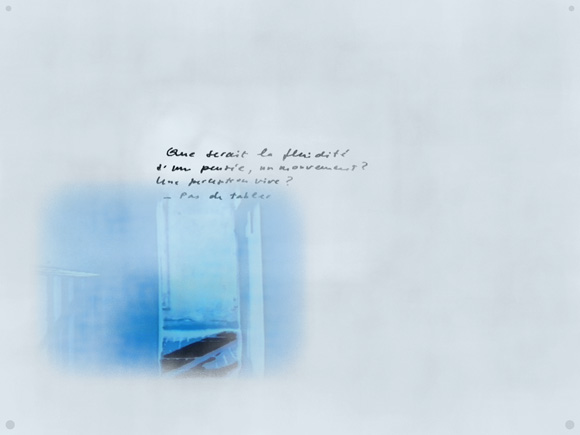 Que serait la fluidité
d'un pensée, un mouvement?
Une perception vive?
— Pas de tables